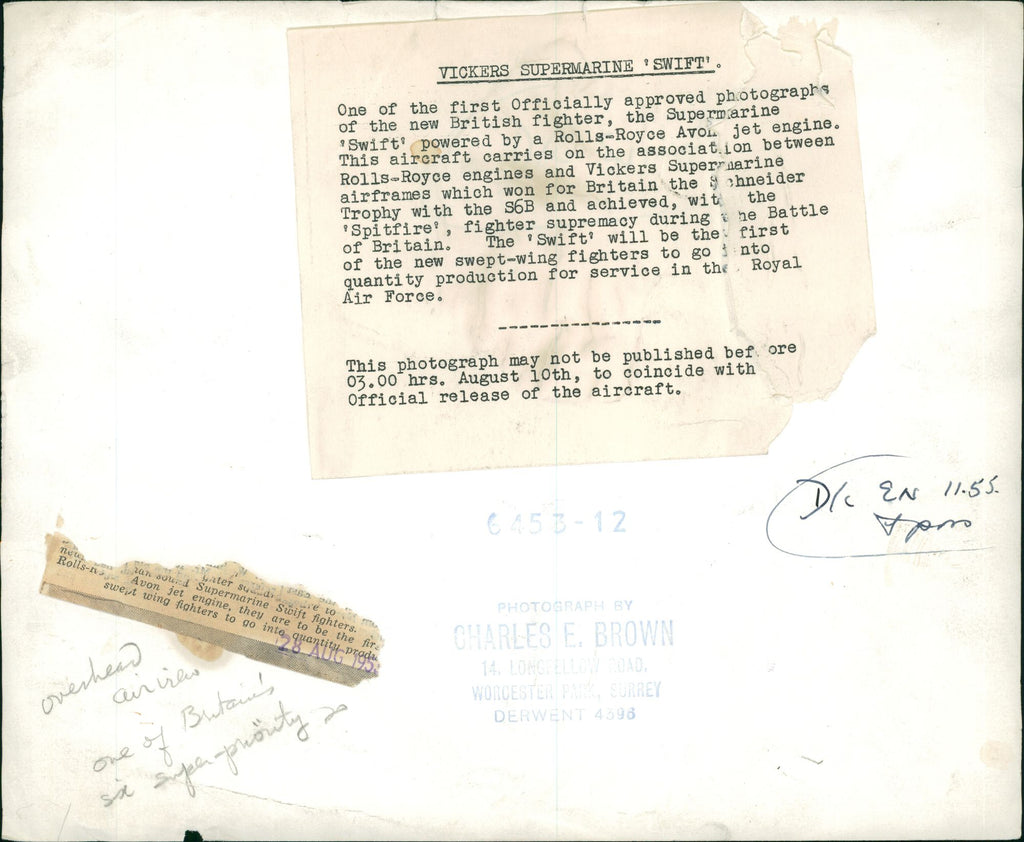 VICKERS SUPERMARINE 'SWIFT'.
One of the first Officially approved photographs
of the new British fighter, the Supermarine
'Swift' powered by a Rolls-Royce Avon jet engine.
This aircraft carries on the association between
Rolls-Royce engines and Vickers Supermarine
airframes which won for Britain the Schneider
Trophy with the S6B and achieved, with the
'Spitfire', fighter supremacy during the Battle
of Britain. The 'Swift' will be the first
of the new swept-wing fighters to go into
quantity production for service in the Royal
Air Force.
----------------
This photograph may not be published before
03.00 hrs. August 10th, to coincide with
Official release of the aircraft.
D/c EN 11.55.
6453-12
sound
Supermarine Swift fighters.
Avon jet engine, they are to be the fir
swept wing fighters to go into quantity produ
28 AUG 195
PHOTOGRAPH BY
CHARLES E. BROWN
14. LONGFELLOW ROAD.
WORCESTER PARK, SURREY
DERWENT 4396
overhead
air view
one of Britain's
six super-priority